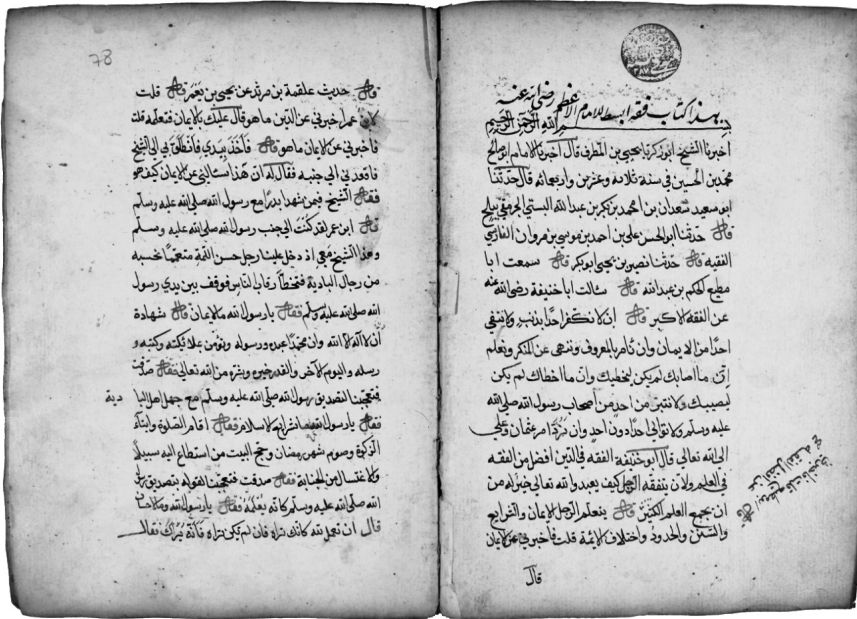 هذا كتاب فقه ابسط للامام الاعظم رضي الله عنه
بسم الله الرحمن الرحيم
اخبرنا الشيخ ابو زكريا يحيى بن المطرف قال اخبرنا الامام ابو صالح
محمد بن الحسين في سنة ثلاثة وعشرين واربعمائة قال حدثنا
ابو سعيد سعدان بن محمد بن بكر بن عبد الله البستي الجرمقي
قال حدثنا ابو الحسن علي بن احمد بن موسى بن مروان الفارسي
الفقيه قال حدثنا نصير بن يحيى ابو بكر قال سمعت ابا
مطيع الحكم بن عبد الله قال سالت ابا حنيفة رضي الله عنه
عن الفقه الاكبر قال ان لا نكفر احدا بذنب ولا ننفي
احدا من الايمان وان نامر بالمعروف وننهى عن المنكر ونعلم
ان ما اصابك لم يكن ليخطيك وان ما اخطاك لم يكن
ليصيبك ولا نتبرء من احد من اصحاب رسول الله صلى الله
عليه وسلم ولا نوالي احدا دون احد وان نرد امر عثمان وعلي
الى الله تعالى قال ابو حنيفة الفقه في الدين افضل من الفقه
في العلم ولان يتفقه الرجل كيف يعبد الله تعالى خير له من
ان يجمع العلم الكثير قال يتعلم الرجل الايمان والشرايع
والسنن والحدود واختلاف الايمة قلت فاخبرني عن الايمان
قال
78
قال حديث علقمة بن مرثد عن يحيى بن يعمر قال قلت
لابن عمر اخبرني عن الدين ما هو قال عليك بالايمان فتعلمه قلت
فاخبرني عن الايمان ما هو قال فاخذ بيدي فانطلق بي الى الشيخ
فاقعدني الى جنبه فقال له ان هذا سالني عن الايمان كيف هو
فقال الشيخ فيمن شهد بدرا مع رسول الله صلى الله عليه وسلم
قال ابن عمر لقد كنت الى جنب رسول الله صلى الله عليه وسلم
وهذا الشيخ معي اذ دخل علينا رجل حسن اللمة متعمما نحسبه
من رجال البادية فتخطا رقاب الناس فوقف بين يدي رسول
الله صلى الله عليه وسلم فقال يا رسول الله ما الايمان قال شهادة
ان لا اله الا الله وان محمدا عبده ورسوله وتؤمن بملائكته وكتبه و
رسله واليوم الآخر والقدر خيره وشره من الله تعالى فقال صدقت
فتعجبنا بتصديق رسول الله صلى الله عليه وسلم مع جهل اهل البا دية
فقال يا رسول الله ما شرائع الاسلام فقال اقام الصلوة وايتاء
الزكوة وصوم شهر رمضان وحج البيت من استطاع اليه سبيلا
والاغتسال من الجنابة فقال صدقت فتعجبنا لقوله بتصديق رسول
الله صلى الله عليه وسلم كانه يعلمه فقال يا رسول الله وما الاحسان
قال ان تعمل لله كانك تراه فان لم تكن تراه فانه يراك فقال